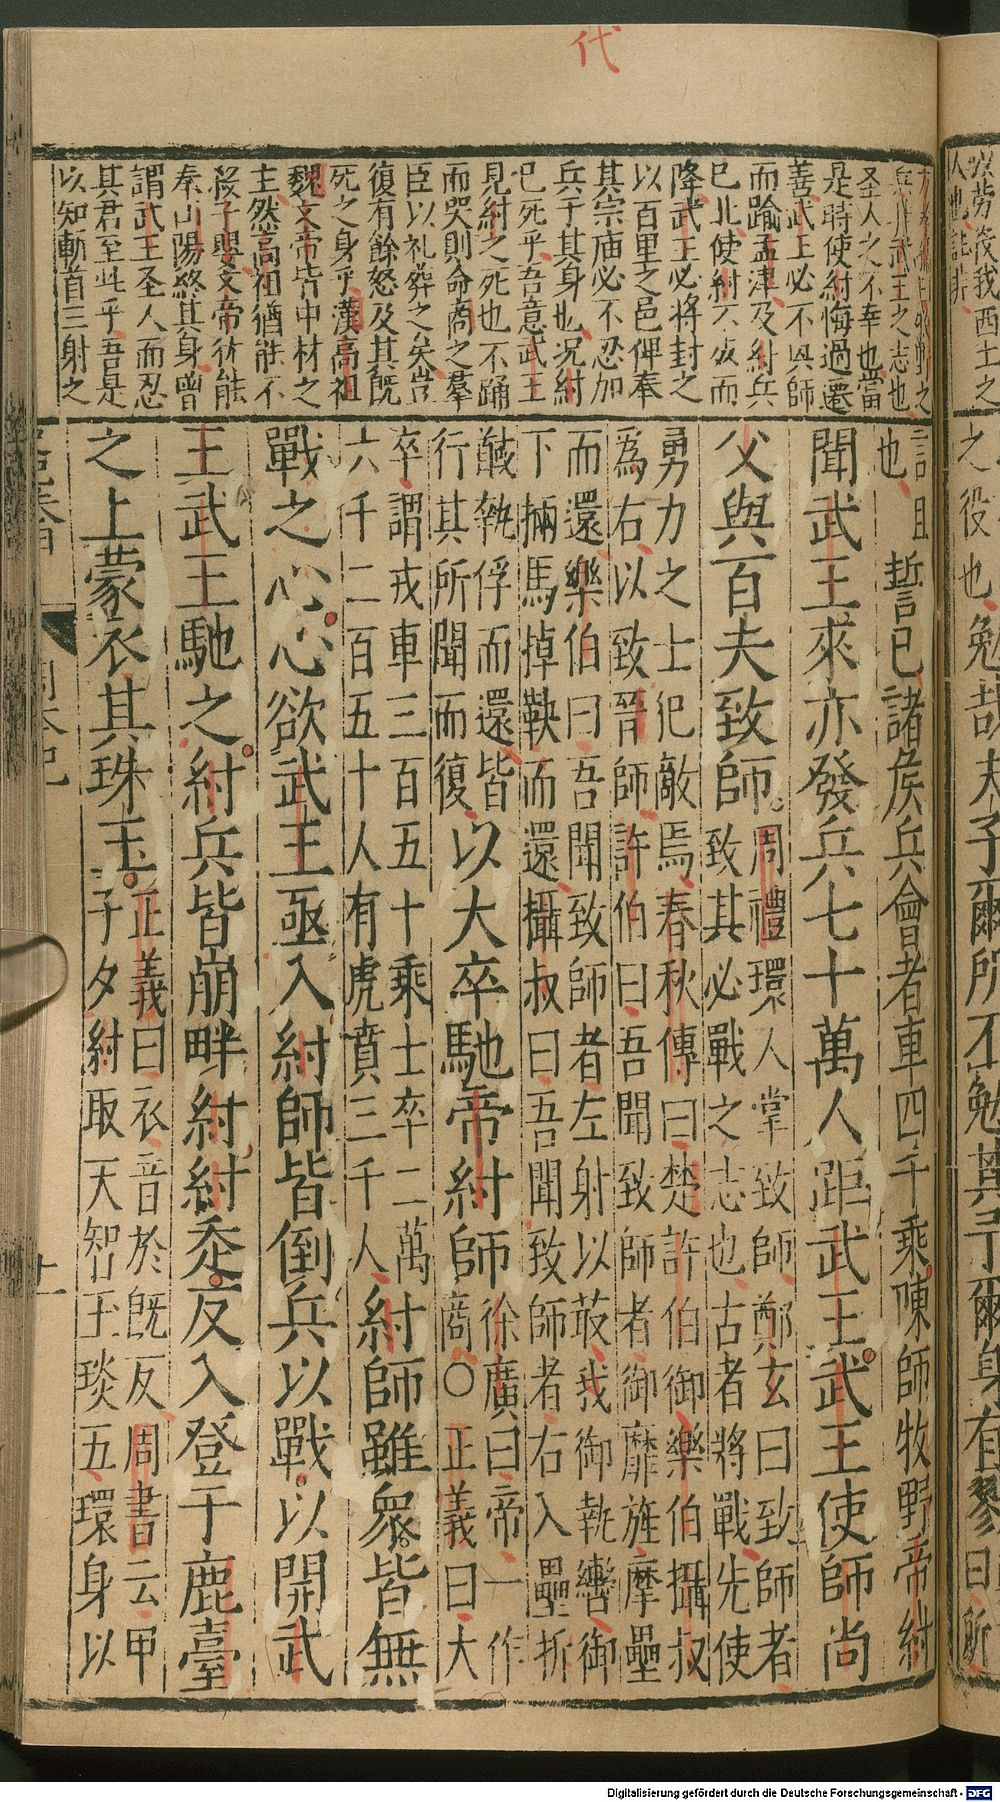 代
之役也勉哉夫子爾所不勉其于爾身有戮曰所
武王之志也
圣人之不幸也當
是時使紂悔過遷
善武王必不與師
而踰孟津及紂兵
已北使紂不而
降武王必將封之
以百里之邑俾奉
其宗庙必不忍加
兵于其身也况紂
已死乎吾意武王
見紂之死也不踊
而哭則命商之羣
臣以礼葬之矣豈
復有餘怒及其既
死之身乎漢高祖
魏文帝皆中材之
主然高祖猶能不
殺子嬰文帝犹能
奉山陽終其身曾
謂武王圣人而忍
其君至此乎吾是
以知斬首三射之
且
也
誓已諸侯兵會者車四千乘陳師牧野帝紂
聞武王來亦發兵七十萬人距武王武王使師尚
父與百夫致師
周禮環人掌致師鄭玄曰致師者
致其必戰之志也古者將戰先使
勇力之士犯敵焉春秋傳曰楚許伯御樂伯攝叔
為右以致晉師許伯曰吾聞致師者御靡旌摩壘
而還樂伯曰吾聞致師者左射以菆我御執轡御
下掚馬掉鞅而還攝叔曰吾聞致師者右入壘折
馘執俘而還皆
行其所聞而復
以大卒馳帝紂師
徐廣曰帝一作
商○正義曰大
卒謂戎車三百五十乘士卒二萬
六千二百五十人有虎賁三千人
紂師雖衆皆無
戰之心心欲武王亟入紂師皆倒兵以戰以開武
王武王馳之紂兵皆崩畔紂紂走反入登于鹿臺
之上蒙衣其珠玉
正義曰衣音於既反周書云甲
子夕紂取天智玉琰五環身以
Digitalisierung gefördert durch die Deutsche Forschungsgemeinschaft - DFG